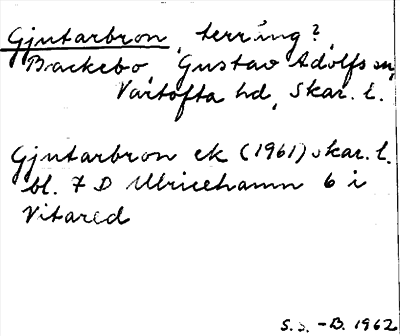 Gjutarbron, terräng?
Backebo, Gustav Adolfs sn,
Vartofta hd, Skar. l.
Gjutarbron ek (1961) Skar. l.
bl. 7 D Ulricehamn 6 i
Vitared
S.S. -B. 1962